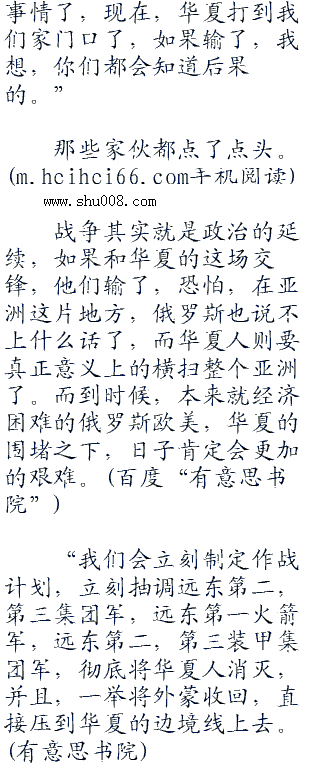 事情了，现在，华夏打到我
们家门口了，如果输了，我
想，你们都会知道后果
的。”
那些家伙都点了点头。
(m.hcihci66.com手机阅读)
www.shu008.com
战争其实就是政治的延
续，如果和华夏的这场交
锋，他们输了，恐怕，在亚
洲这片地方，俄罗斯也说不
上什么话了，而华夏人则要
真正意义上的横扫整个亚洲
了。而到时候，本来就经济
困难的俄罗斯欧美，华夏的
围堵之下，日子肯定会更加
的艰难。(百度“有意思书
院”)
“我们会立刻制定作战
计划，立刻抽调远东第二，
第三集团军，远东第一火箭
军，远东第二，第三装甲集
团军，彻底将华夏人消灭，
并且，一举将外蒙收回，直
接压到华夏的边境线上去。
(有意思书院)